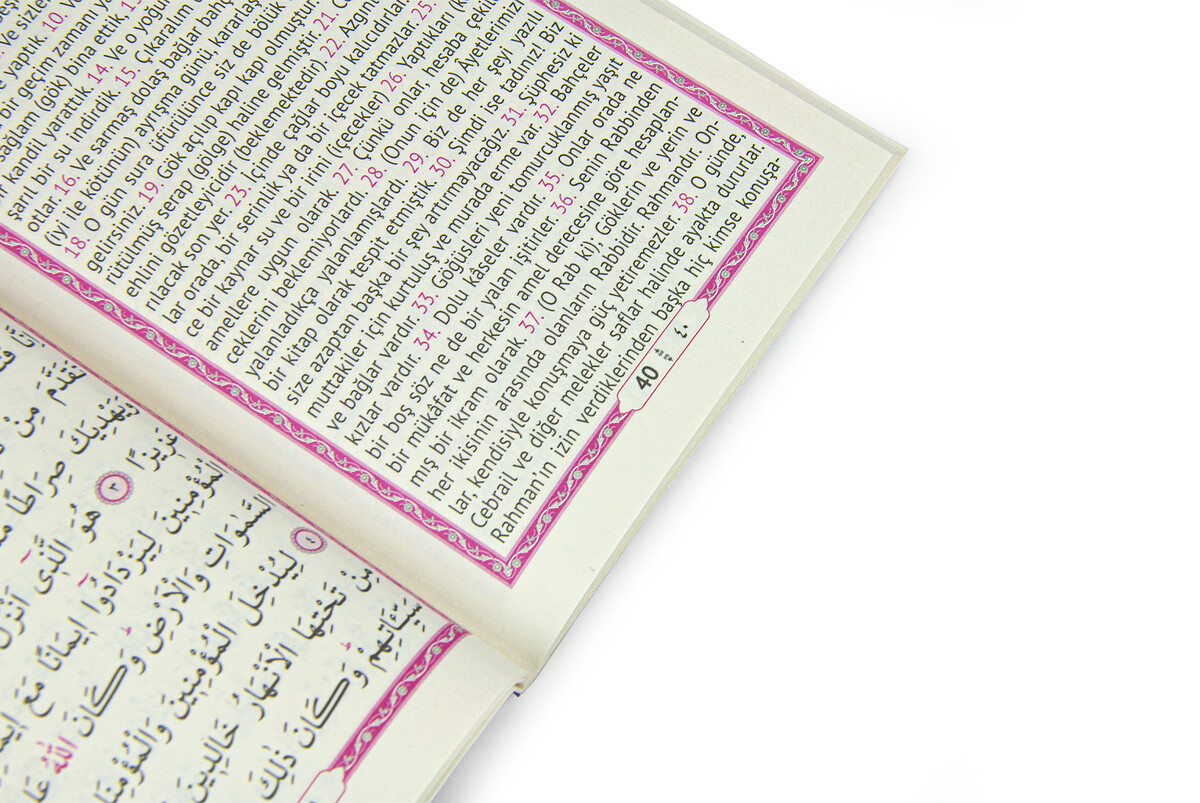 yaptık. 10.
bir geçim zaman
sağlam (gök) bina ettik.
kandil yarattık. 14. Ve o yoğun
şarıl bir su indirdik. 15. Çıkaralım
otlar. 16. Ve sarmaş dolaş bağlar
(iyi ile kötünün) ayrışma günü,
18. O gün sura üfürülünce siz de bölük
gelirsiniz. 19. Gök açılıp kapı kapı olmuştur.
rütülmüş serap (gölge) haline gelmiştir. 21.
ehlini gözetleyicidir (beklemektedir) 22. Azgın
rılacak son yer. 23. İçinde çağlar boyu kalıcıdırlar.
lar orada, bir serinlik ya da bir içecek tatmazlar. 25.
ce bir kaynar su ve bir irini (çecekler) 26. Yaptıkları
amellere uygun olarak. 27. Çünkü onlar hesaba
ceklerini beklemiyorlardı. 28. (Onun için de) Âyetlerimizi
yalanladıkça yalanlamışlardı. 29. Biz de her şeyi yazılı
bir kitap olarak tespit etmiştik. 30. Şimdi ise tadınız! Biz
size azaptan başka bir şey artırmayacağız. 31. Şüphesiz ki
muttakiler için kurtuluş ve murada erme var. 32. Bahçeler
ve bağlar vardır. 33. Göğüsleri yeni tomurcuklanmış yaşıt
kızlar vardır. 34. Dolu kâseler vardır. 35. Onlar orada ne
bir boş söz ne de bir yalan işitirler. 36. Senin Rabbinden
bir mükâfat ve herkesin amel derecesine göre hesaplan-
mış bir ikram olarak. 37. (O Rab ki), Göklerin ve yerin ve
her ikisinin arasında olanların Rabbidir. Rahmandır. On-
lar, kendisiyle konuşmaya güç yetiremezler. 38. O günde,
Cebrail ve diğer melekler saflar halinde ayakta dururlar
Rahman'ın izin verdiklerinden başka hiç kimse konuşa-
40 ٤٠
وَيَهْدِيَكَ صِرَاطًا
عَزِيزًا ٣ هُوَ الَّذِى اَنْزَلَ
الْمُؤْمِنِينَ لِيَزْدَادُوا اِيمَانًا مَعَ
السَّمٰوَاتِ وَالْاَرْضِ وَكَانَ اللّٰهُ
٤ لِيُدْخِلَ الْمُؤْمِنِينَ
مِنْ تَحْتِهَا الْاَنْهَارُ خَالِدِينَ
سَيِّـَٔاتِهِمْ وَكَانَ ذٰلِكَ